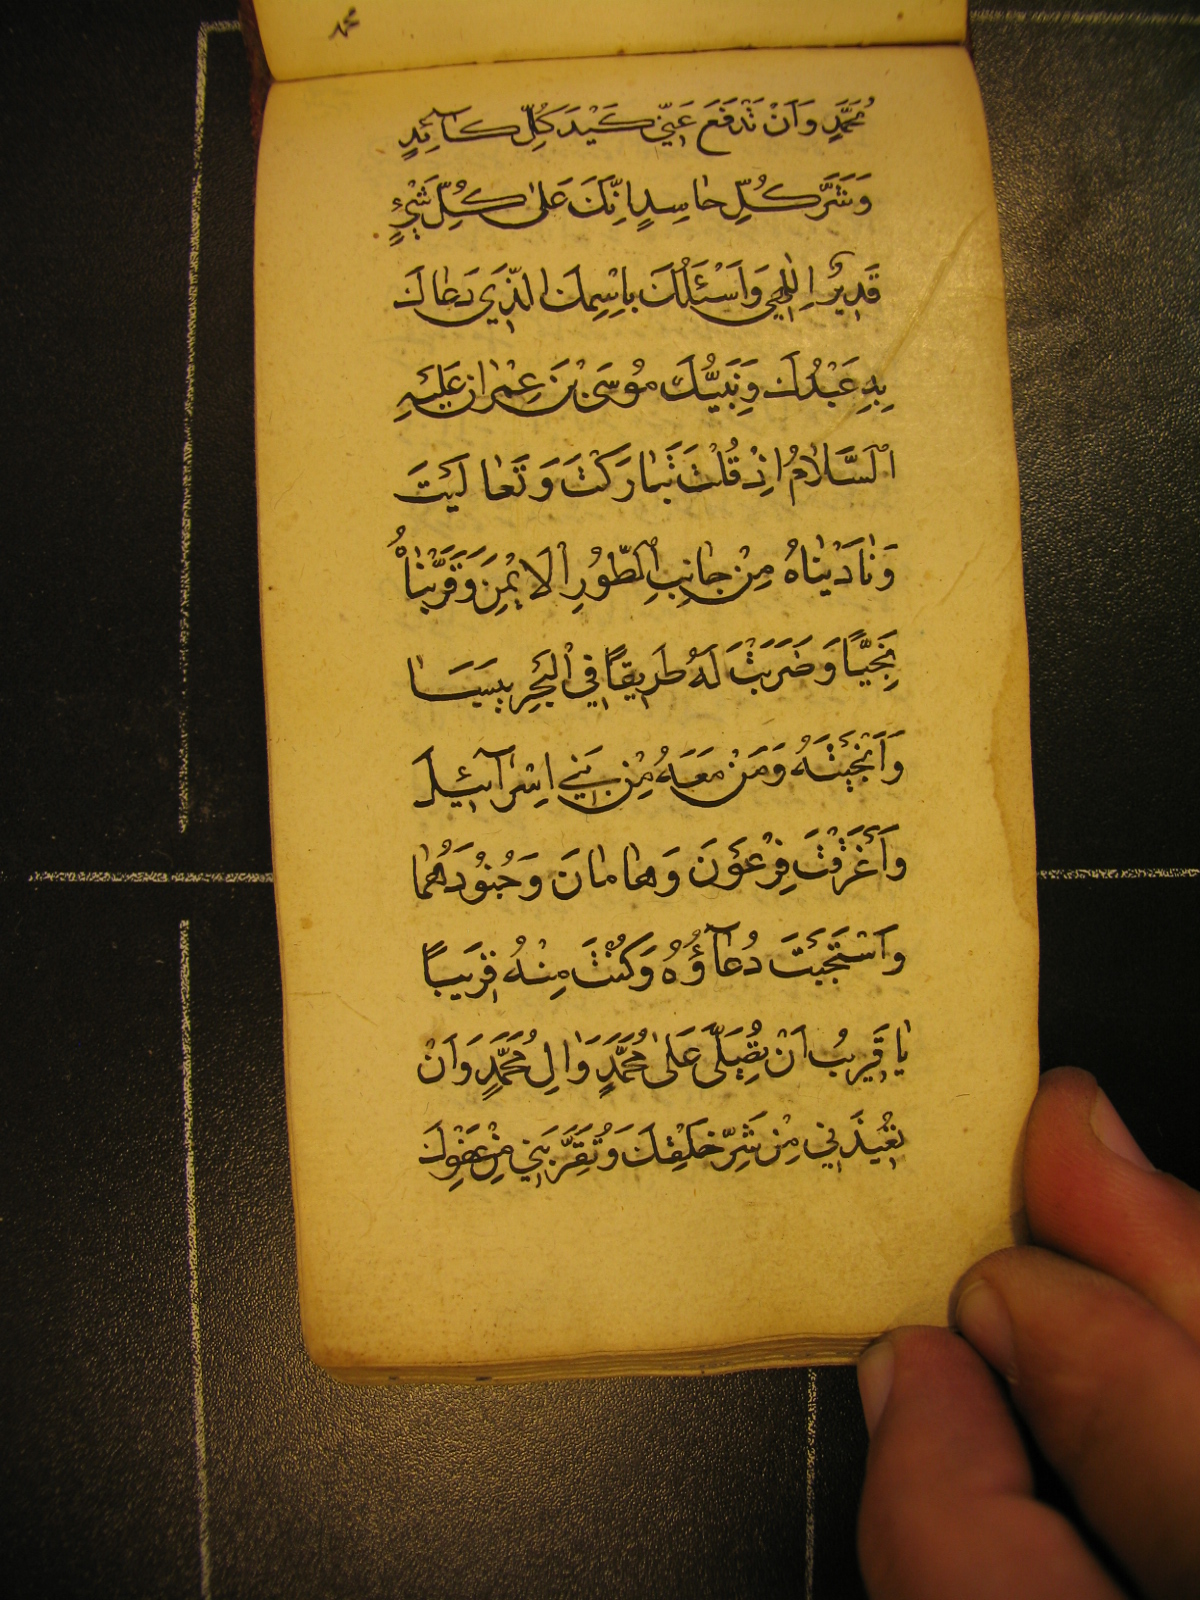 محمد
مُحَمَّدٍ وَاَنْ تَدْفَعَ عَنّي كَيْدَ كُلِّ كآئِدٍ
وَشَرَّ كُلِّ حاسِدٍ اِنَّكَ عَلىٰ كُلِّ شَيْءٍ
قَديرٌ اِلٰهي وَاَسْئَلُكَ بِاسْمِكَ الَّذي دَعاكَ
بِهِ عَبْدُكَ وَنَبِيُّكَ مُوسَى بْنَ عِمْرانَ عَلَيْهِ
السَّلامُ اِذْ قُلْتَ تَبارَكْتَ وَتَعالَيْتَ
وَنادَيْناهُ مِنْ جانِبِ الطُّورِ الْاَيْمَنِ وَقَرَّبْناهُ
نَجِيّاً وَضَرَبْتَ لَهُ طَريقاً فِي الْبَحْرِ يَبَساً
وَاَنْجَيْتَهُ وَمَنْ مَعَهُ مِنْ بَني اِسْرآئيلَ
وَاَغْرَقْتَ فِرْعَوْنَ وَهامانَ وَجُنُودَهُما
وَاسْتَجَبْتَ دُعآؤُهُ وَكُنْتَ مِنْهُ قَريباً
يا قَريبُ اَنْ تُصَلِّيَ عَلىٰ مُحَمَّدٍ وَالِ مُحَمَّدٍ وَاَنْ
تُعيذَني مِنْ شَرِّ خَلْقِكَ وَتُقَرِّبَني مِنْ عَفْوِكَ